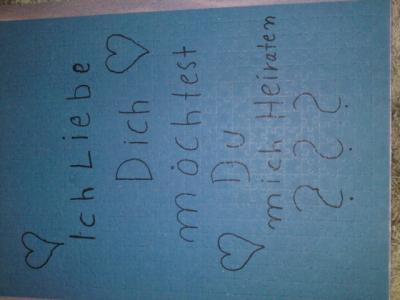 Ich Liebe
Dich
möchtest
Du
mich Heiraten
???